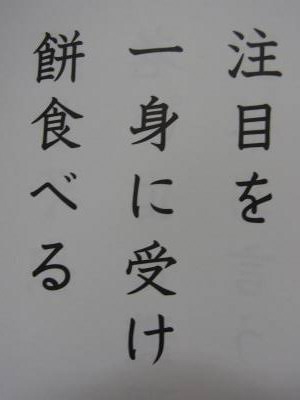 注目を
一身に受け
餅食べる